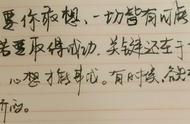 要你敢想，一切皆有可能
若要取得成功，关键还在于
心想才能事成。有时候，